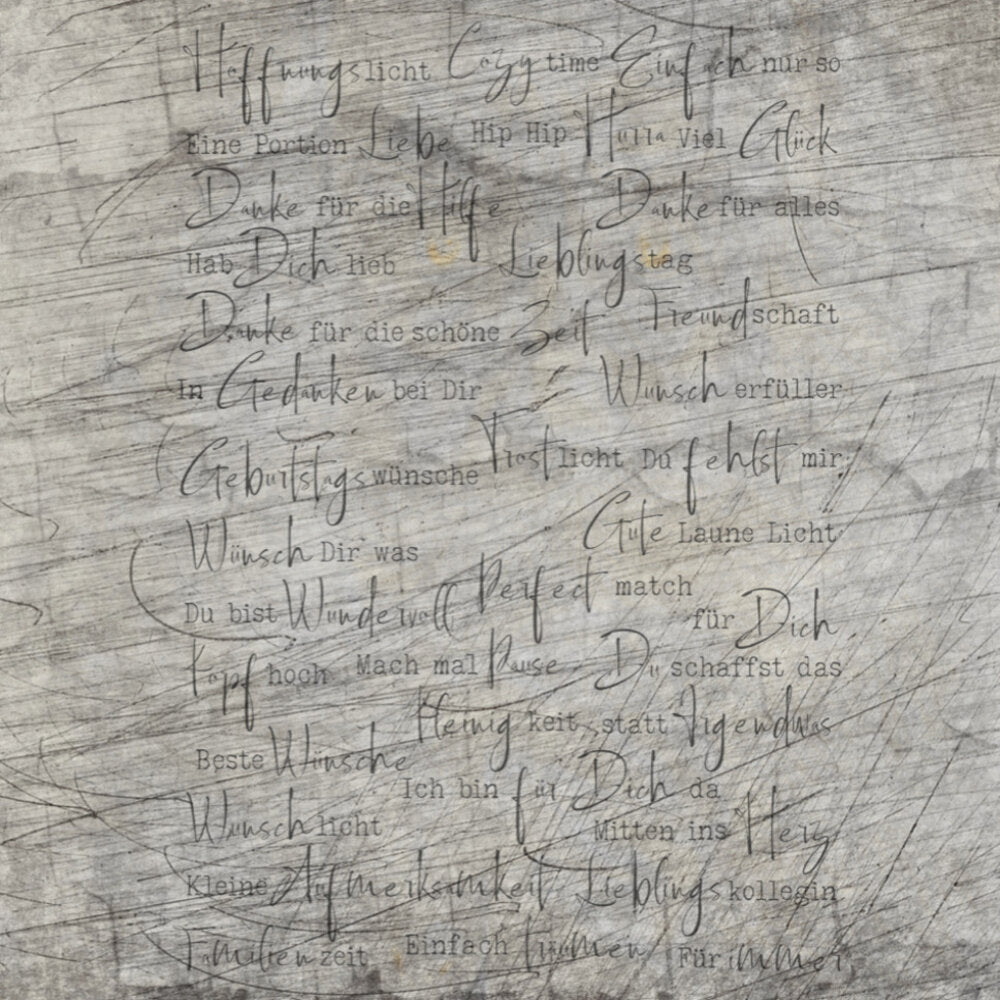 Hoffnungslicht Cozy time Einfach nur so
Eine Portion Liebe Hip Hip Hurra Viel Glück
Danke für die Hilfe Danke für alles
Hab Dich lieb Lieblingstag
Danke für die schöne Zeit Freundschaft
In Gedanken bei Dir Wunsch erfüller
Geburtstagswünsche Trostlicht Du fehlst mir
Wünsch Dir was Gute Laune Licht
Du bist Wundervoll Perfect match
für Dich
Kopf hoch Mach mal Pause Du schaffst das
keit statt Irgendwas
Beste Wünsche
Ich bin für Dich da
Wunschlicht Mitten ins Herz
Kleine Aufmerksamkeit Lieblingskollegin
Familienzeit Einfach träumen Für immer